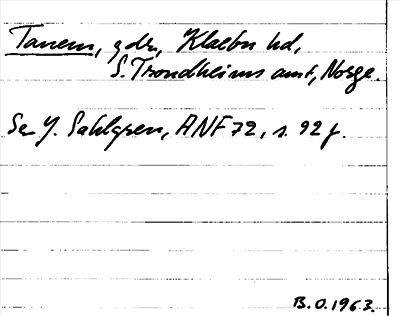 Tanem, gdr, Klæbu hd,
S. Trondheims amt, Norge.
Se J. Sahlgren, ANF 72, s. 92 f.
B.O. 1963.